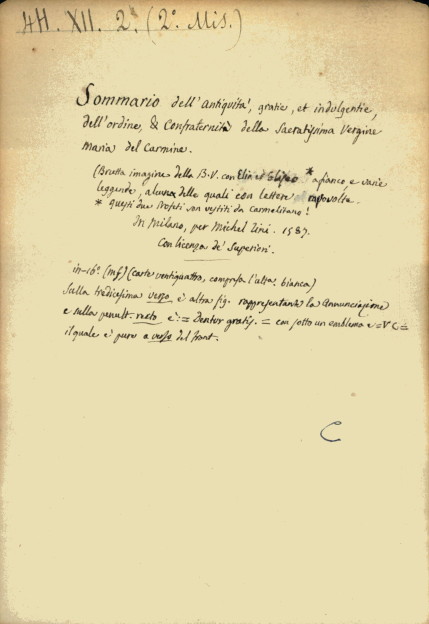 4H. XII. 2. (2.° Mis.)
Sommario dell'antiquità, gratie, et indulgentie,
dell'ordine, & Confraternità della Sacratissima Vergine
Maria del Carmine.
(Brutta imagine della B.V. con Elia ed Eliseo * a fianco, e varie
leggende, alcune delle quali con lettere capovolte.
* Questi due Profeti son vestiti da Carmelitano!
In Milano, per Michel Tini. 1587.
Con licenza de' Superiori.
in-16.° (mf) (carte ventiquattro, compresa l'ultª. bianca)
Sulla tredicesima verso è altra fig. rappresentante la Annunciazione
e sulla penult. recto è := Dentur gratis. = con sotto un emblema e = V C =
il quale è pure a verso del front.
C